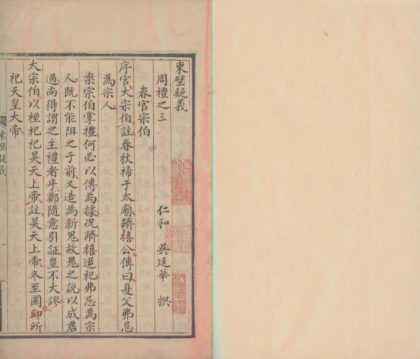 東壁疑義
周禮之三
仁和 吳廷華 撰
春官宗伯
序官大宗伯註春秋禘于太廟躋僖公傳曰夏父弗忌
為宗人
案宗伯掌禮何必以傳為據况躋僖逆祀弗忌為宗
人既不能阻之于前又造為新鬼故鬼之說以成君
過尚得謂之主禮者乎鄭隨意引証豈不大謬
大宗伯以禋祀祀昊天上帝註昊天上帝冬至圜邱所
祀天皇大帝